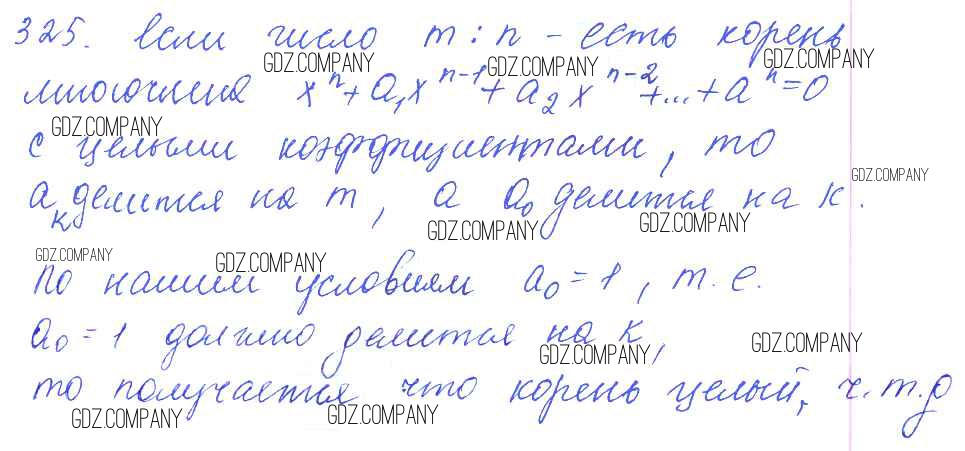 325. Если число m : n - есть корень
GDZ.COMPANY GDZ.COMPANY GDZ.COMPANY
многочлена xⁿ + a₁xⁿ⁻¹ + a₂xⁿ⁻² + ... + aⁿ = 0
GDZ.COMPANY
с целыми коэффициентами, то
GDZ.COMPANY
aₖ делится на m, а a₀ делится на к.
GDZ.COMPANY GDZ.COMPANY
GDZ.COMPANY GDZ.COMPANY
По нашим условиям a₀ = 1, т. е.
a₀ = 1 должно делится на к,
GDZ.COMPANY GDZ.COMPANY
то получается что корень целый, ч.т.д
GDZ.COMPANY GDZ.COMPANY